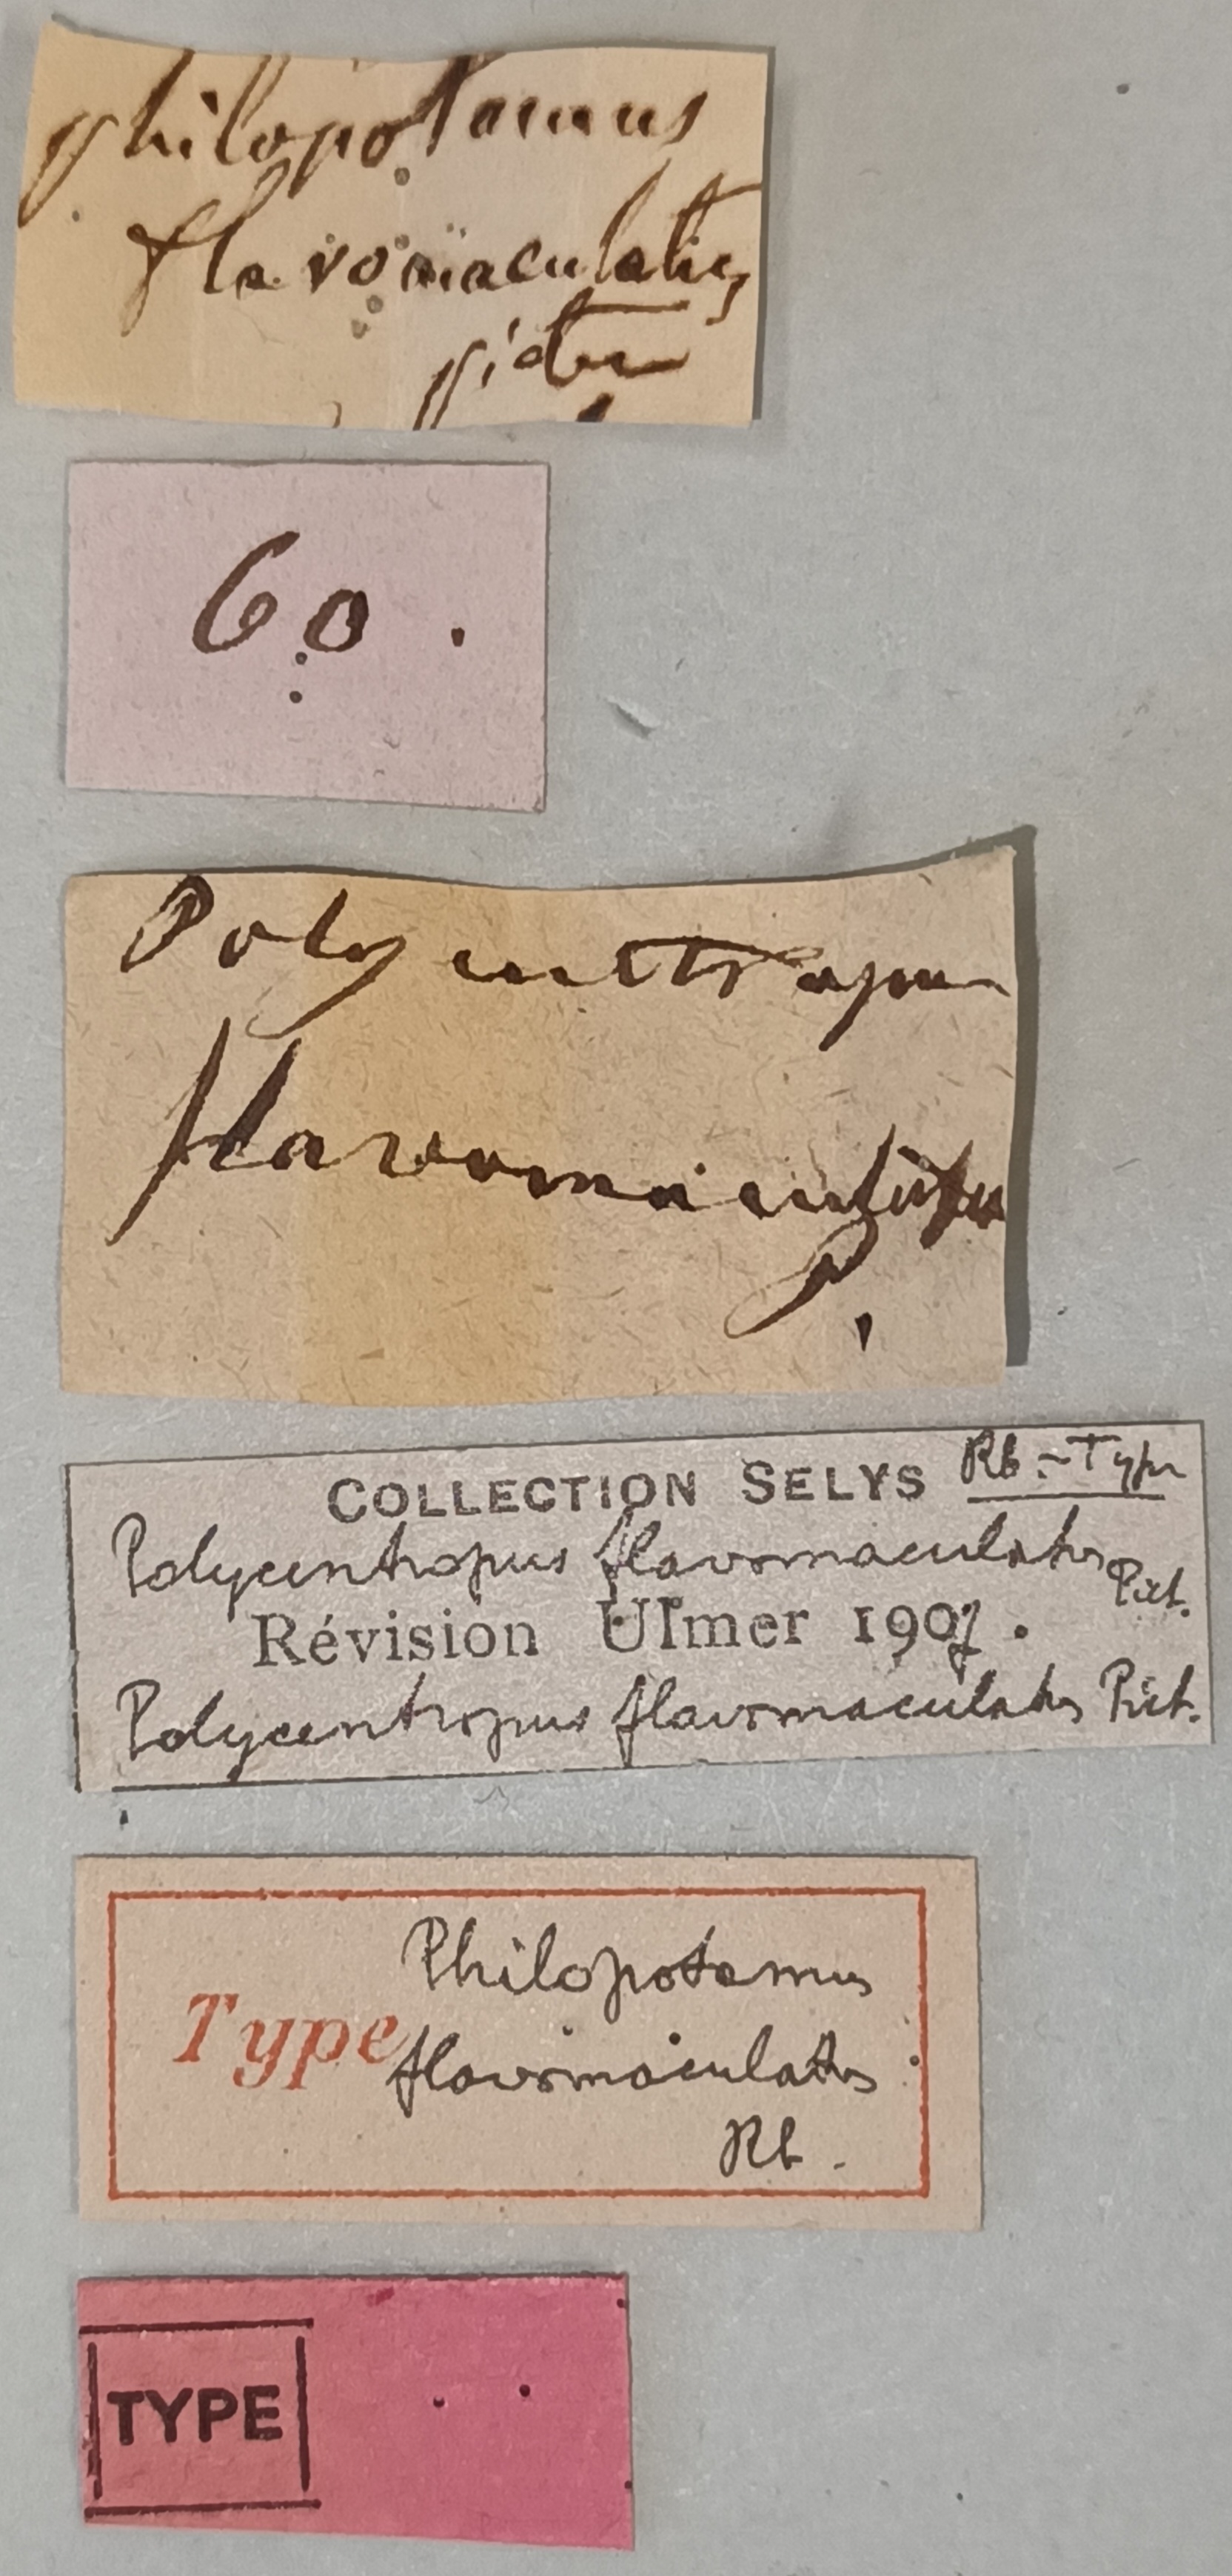 philopotamus
flavomaculatus
pictet
60.
Polycentropus
flavomaculatus
P.
COLLECTION SELYS Rb - Type
Polycentropus flavomaculatus Pict.
Révision Ulmer 1907.
Polycentropus flavomaculatus Pict.
Philopotamus
Type flavomaculatus
Rb.
TYPE